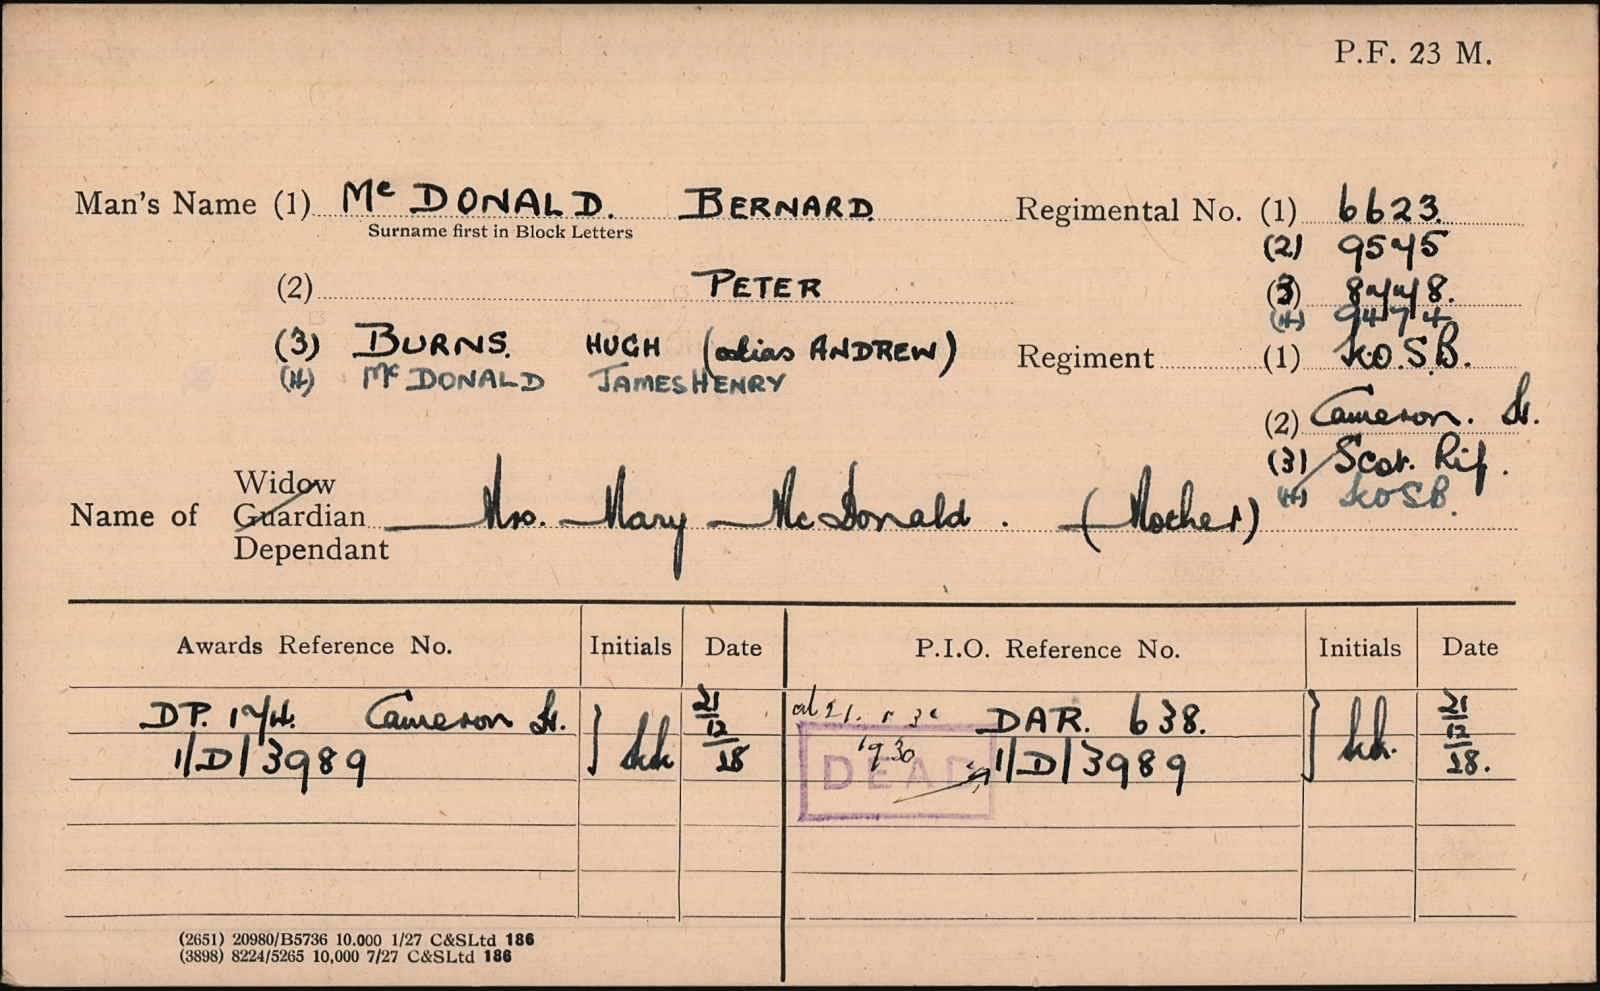 P.F. 23 M.
Man's Name (1) Mc DONALD. BERNARD. Regimental No. (1) 6623.
Surname first in Block Letters
(2) 9545
(2) PETER (3) 8778.
(4) 9474
(3) BURNS. HUGH (alias ANDREW) Regiment (1) K.O.S.B.
(4) Mc DONALD JAMES HENRY
(2) Cameron. Hr.
(3) Scot. Rif.
Widow (4) KOSB.
Name of Guardian Mrs. Mary McDonald. (Mother)
Dependant
Awards Reference No. Initials Date P.I.O. Reference No. Initials Date
DP. 174. Cameron Hr. 21 DAR. 638. 21
12 1930 12
1/D/3989 28 DEAD 1/D/3989 28.
(2651) 20980/B5736 10.000 1/27 C&SLtd 186
(3898) 8224/5265 10,000 7/27 C&SLtd 186